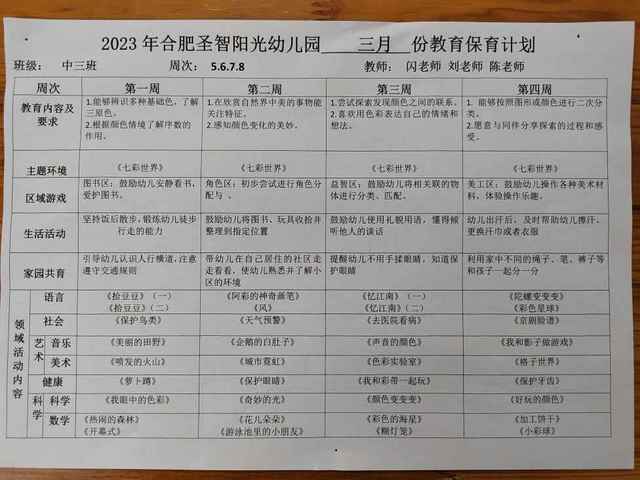 2023 年合肥圣智阳光幼儿园 三月 份教育保育计划
班级： 中三班 周次： 5.6.7.8 教师： 闪老师 刘老师 陈老师
周次 第一周 第二周 第三周 第四周
教育内容及要求
1.能够辨识多种基础色，了解三原色。
2.根据颜色情境了解序数的作用。
1.在欣赏自然界中美的事物能关注特征。
2.感知颜色变化的美妙。
1.尝试探索发现颜色之间的联系。
2.喜欢用色彩表达自己的情绪和想法。
1. 能够按照图形或颜色进行二次分类。
2.愿意与同伴分享探索的过程和感受。
主题环境 《七彩世界》 《七彩世界》 《七彩世界》 《七彩世界》
区域游戏
图书区：鼓励幼儿安静看书，爱护图书。
角色区：初步尝试进行角色分配与 、
益智区：鼓励幼儿将相关联的物体进行分类、匹配。
美工区：鼓励幼儿操作各种美术材料，体验操作乐趣。
生活活动
坚持饭后散步，锻炼幼儿徒步行走的能力
鼓励幼儿将图书、玩具收拾并整理到指定位置
鼓励幼儿使用礼貌用语，懂得倾听他人的谈话
幼儿出汗后，及时帮助幼儿擦汗、更换汗巾或者衣服
家园共育
引导幼儿认识人行横道，注意遵守交通规则
带幼儿在自己居住的社区走走看看，使幼儿熟悉并了解小区的环境
提醒幼儿不用手揉眼睛，知道保护眼睛
利用家中不同的绳子、笔、裤子等和孩子一起分一分
领域活动内容
语言 《拾豆豆》（一） 《阿彩的神奇画笔》 《忆江南》（一） 《陀螺变变变》
《拾豆豆》（二） 《风》 《忆江南》（二） 《彩色星球》
社会 《保护鸟类》 《天气预警》 《去医院看病》 《京剧脸谱》
艺术 音乐 《美丽的田野》 《企鹅的白肚子》 《声音的颜色》 《我和影子做游戏》
美术 《喷发的火山》 《城市霓虹》 《色彩实验室》 《格子世界》
健康 《萝卜蹲》 《保护眼睛》 《我和彩带一起玩》 《保护牙齿》
科学 科学 《我眼中的色彩》 《奇妙的光》 《颜色变变变》 《好玩的颜色》
数学 《热闹的森林》 《花儿朵朵》 《彩色的海星》 《加工饼干》
《开幕式》 《游泳池里的小朋友》 《糊灯笼》 《小彩球》